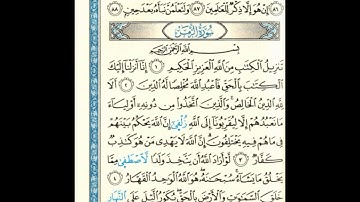 ٨٦ إِنْ هُوَ إِلَّا ذِكْرٌ لِّلْعَالَمِينَ ٨٧ وَلَتَعْلَمُنَّ نَبَأَهُ بَعْدَ حِينٍ ٨٨
سُورَةُ الزُّمَرِ
بِسْمِ اللَّهِ الرَّحْمَٰنِ الرَّحِيمِ
تَنزِيلُ الْكِتَابِ مِنَ اللَّهِ الْعَزِيزِ الْحَكِيمِ ١ إِنَّا أَنزَلْنَا إِلَيْكَ
الْكِتَابَ بِالْحَقِّ فَاعْبُدِ اللَّهَ مُخْلِصًا لَّهُ الدِّينَ ٢ أَلَا
لِلَّهِ الدِّينُ الْخَالِصُ وَالَّذِينَ اتَّخَذُوا مِن دُونِهِ أَوْلِيَاءَ
مَا نَعْبُدُهُمْ إِلَّا لِيُقَرِّبُونَا إِلَى اللَّهِ زُلْفَىٰ إِنَّ اللَّهَ يَحْكُمُ بَيْنَهُمْ
فِي مَا هُمْ فِيهِ يَخْتَلِفُونَ إِنَّ اللَّهَ لَا يَهْدِي مَنْ هُوَ كَاذِبٌ
كَفَّارٌ ٣ لَّوْ أَرَادَ اللَّهُ أَن يَتَّخِذَ وَلَدًا لَّاصْطَفَىٰ مِمَّا
يَخْلُقُ مَا يَشَاءُ سُبْحَانَهُ هُوَ اللَّهُ الْوَاحِدُ الْقَهَّارُ ٤
خَلَقَ السَّمَاوَاتِ وَالْأَرْضَ بِالْحَقِّ يُكَوِّرُ اللَّيْلَ عَلَى النَّهَارِ